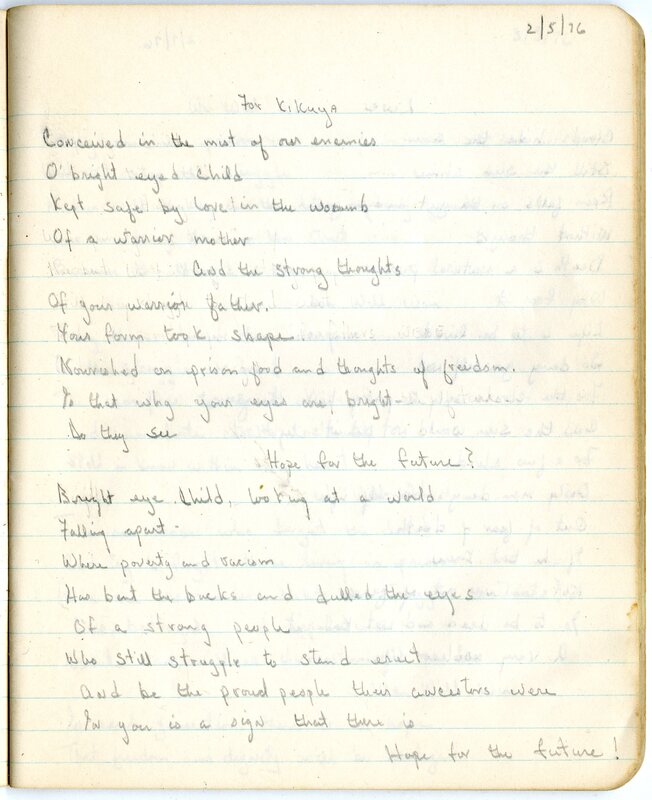 2/5/76
For Kikuya
Conceived in the mist of our enemies
O' bright eyed child
Kept safe by love in the woumb
Of a warrior mother
And the strong thoughts
Of your warrior father.
Your form took shape.
Nourished on prison food and thoughts of freedom.
Is that why your eyes are, bright-
Do they see
Hope for the future?
Bright eye child, looking at a world
Falling apart-
Where poverty and racism
Has bent the backs and dulled the eyes
Of a strong people
Who still struggle to stand erect
And be the proud people their ancestors were
In you is a sign that there is
Hope for the future!